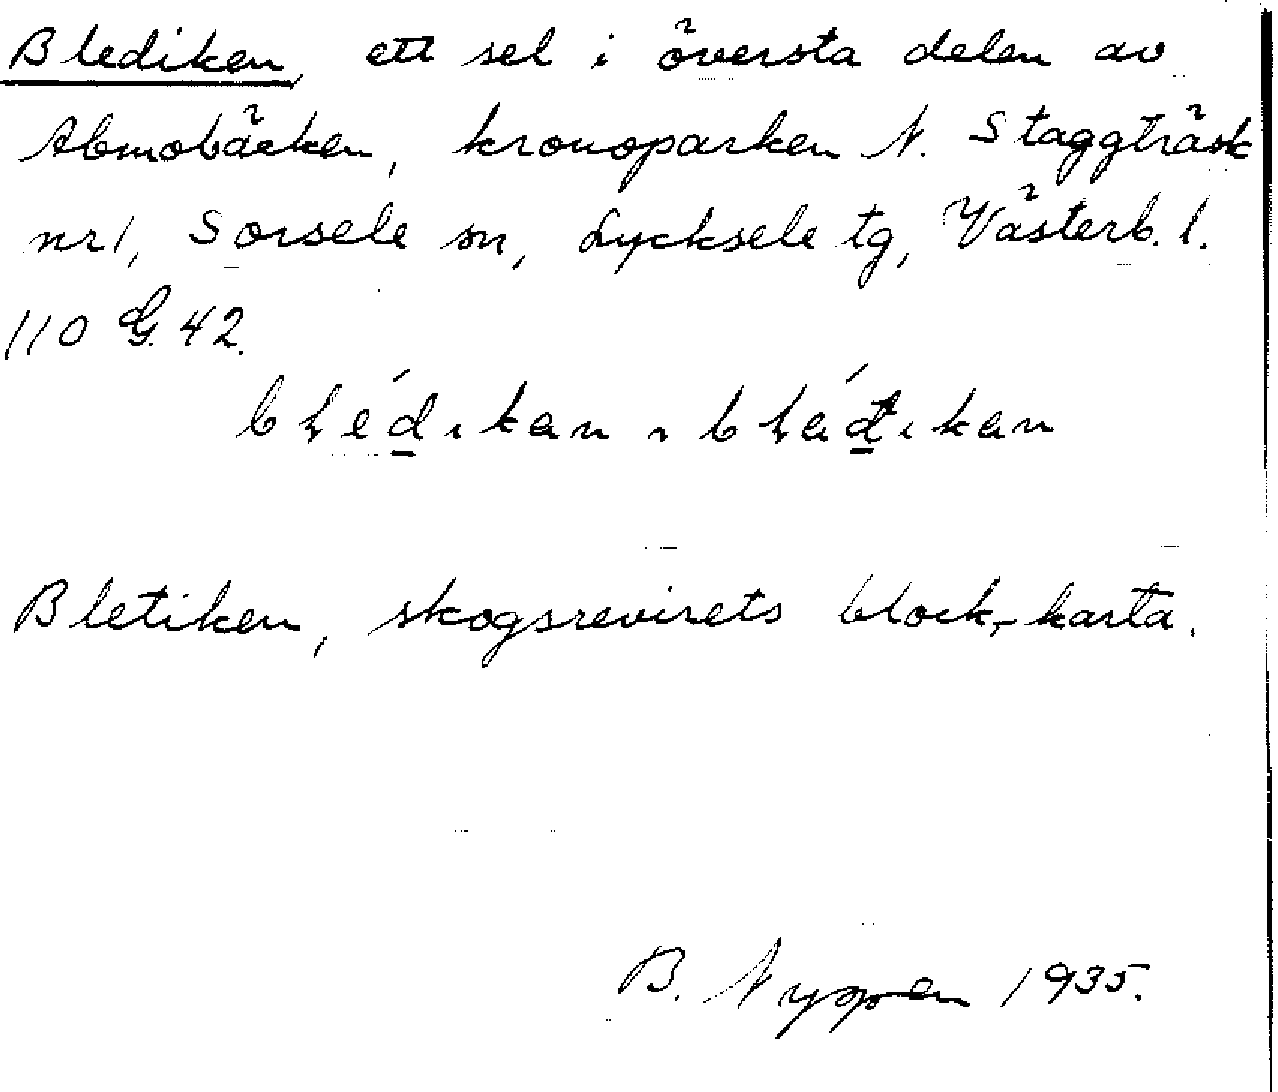 Blediken, ett sel i översta delen av
Abmobäcken, kronoparken N. Staggträsk
nr 1, Sorsele sn, Lycksele tg, Västerb. l.
110 G. 42.
Bletiken, skogsrevirets block-karta.
B. Nyman 1935.